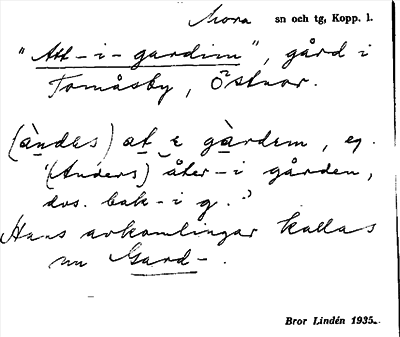 Mora sn och tg, Kopp. l.
"Att-i-gardim", gård i
Tomåsby, Östnor.
(àndεs) at ε gàrdεm, eg.
'(Anders) åter-i gården,
dvs. bak-i g.'
Hans avkomlingar kallas
nu Gard-.
Bror Lindén 1935.